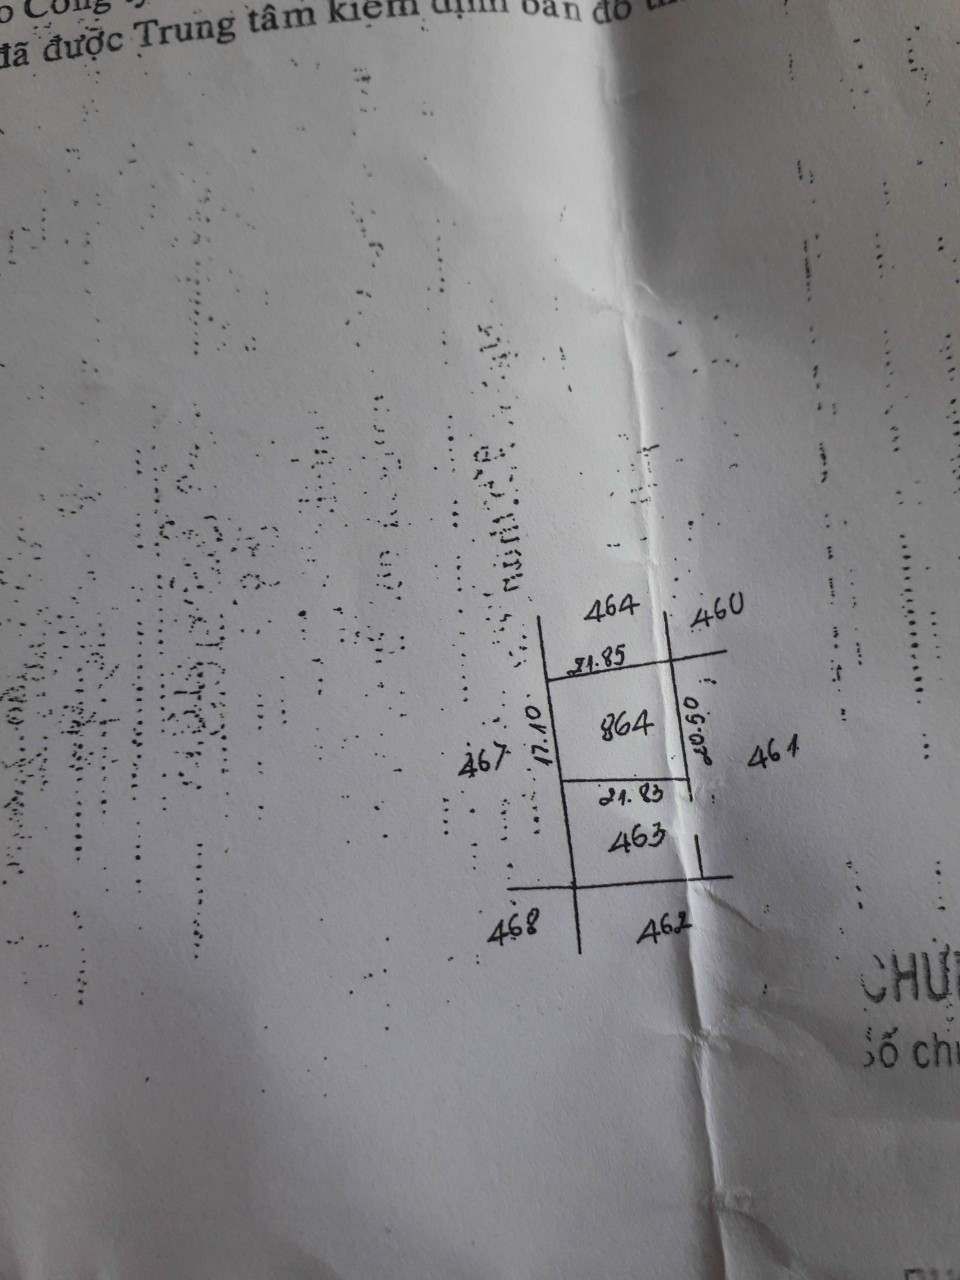 đã được Trung tâm kiểm định bản đồ
464
460
21.85
17.10
864
20.50
467
461
21.83
463
468
462
Số